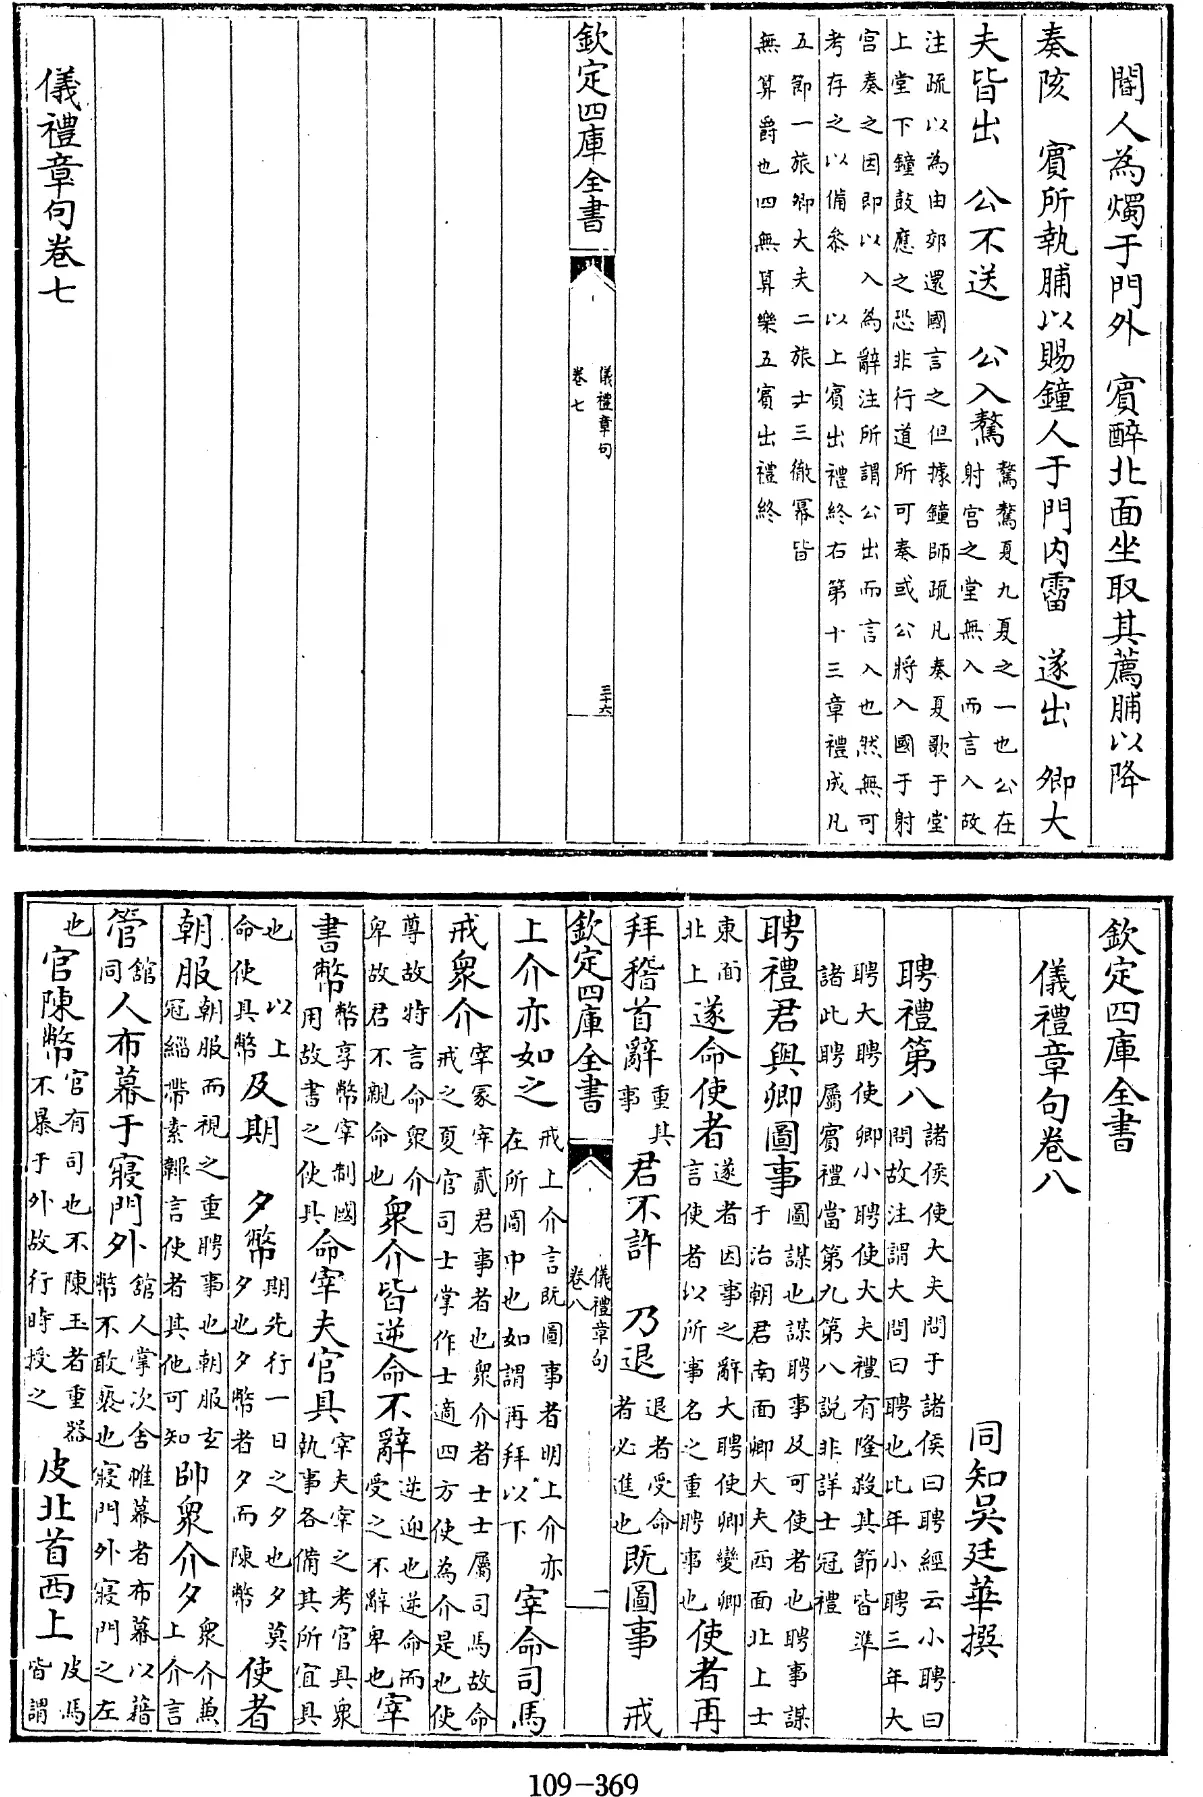 閽人為燭于門外 賓醉北面坐取其薦脯以降
奏陔 賓所執脯以賜鐘人于門内霤 遂出 卿大
夫皆出 公不送 公入驁 驁驁夏九夏之一也公在射宮之堂無入而言入故
注疏以為由郊還國言之但據鐘師疏凡奏夏歌于堂
上堂下鐘鼓應之恐非行道所可奏或公將入國于射
宮奏之因即以入為辭注所謂公出而言入也然無可
考存之以備叅 以上賓出禮終右第十三章禮成凡
五節一旅卿大夫二旅士三徹冪皆
無算爵也四無算樂五賓出禮終
欽定四庫全書
儀禮章句
卷七
三十六
儀禮章句卷七
欽定四庫全書
儀禮章句卷八
同知吳廷華撰
聘禮第八 諸侯使大夫問于諸侯曰聘經云小聘曰問故注謂大問曰聘也比年小聘三年大
聘大聘使卿小聘使大夫禮有隆殺其節皆準
諸此聘屬賓禮當第九第八說非詳士冠禮
聘禮君與卿圖事 圖謀也謀聘事及可使者也聘事謀于治朝君南面卿大夫西面北上士
東面北上 遂命使者 遂者因事之辭大聘使卿變卿言使者以所事名之重聘事也 使者再
拜稽首辭 重其事 君不許 乃退 退者受命者必進也 既圖事 戒
欽定四庫全書
儀禮章句
卷八
一
上介亦如之 戒上介言既圖事者明上介亦在所圖中也如謂再拜以下 宰命司馬
戒衆介 宰冢宰貳君事者也衆介者士士屬司馬故命戒之夏官司士掌作士適四方使為介是也使
尊故特言命衆介卑故君不親命也 衆介皆逆命不辭 逆迎也逆命而受之不辭卑也 宰
書幣 幣享幣宰制國用故書之使具 命宰夫官具 宰夫宰之考官具衆執事各備其所宜具
也以上命使具幣 及期 夕幣 期先行一日之夕也夕莫夕也夕幣者夕而陳幣 使者
朝服 朝服而視之重聘事也朝服玄冠緇帶素韠言使者其他可知 帥衆介夕 衆介兼上介言
管 舘同 人布幕于寢門外 舘人掌次舍帷幕者布幕以藉幣不敢褻也寢門外寢門之左
也 官陳幣 官有司也不陳玉者重器不暴于外故行時授之 皮北首西上 皮馬皆謂
109-369